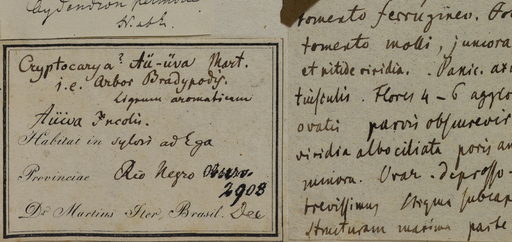 Aydendron
N. ab E.
Cryptocarya? Aü-üva Mart.
i.e. Arbor Bradypodis.
Lignum aromaticum
Aüiva Incolis.
Habitat in sylvis ad Ega
Provinciae Rio Negro
2908
Dr Martius Iter Brasil. Dec
tomento ferrugineo.
tomento molli, juniora
et nitide viridia. . Panic. ax
Flores 4 - 6 agglo
ovatis parvis obscure vir
viridia albociliata poris an
minora. Ovar. depresso-
brevissimus stigma subcap
structuram maxima parte